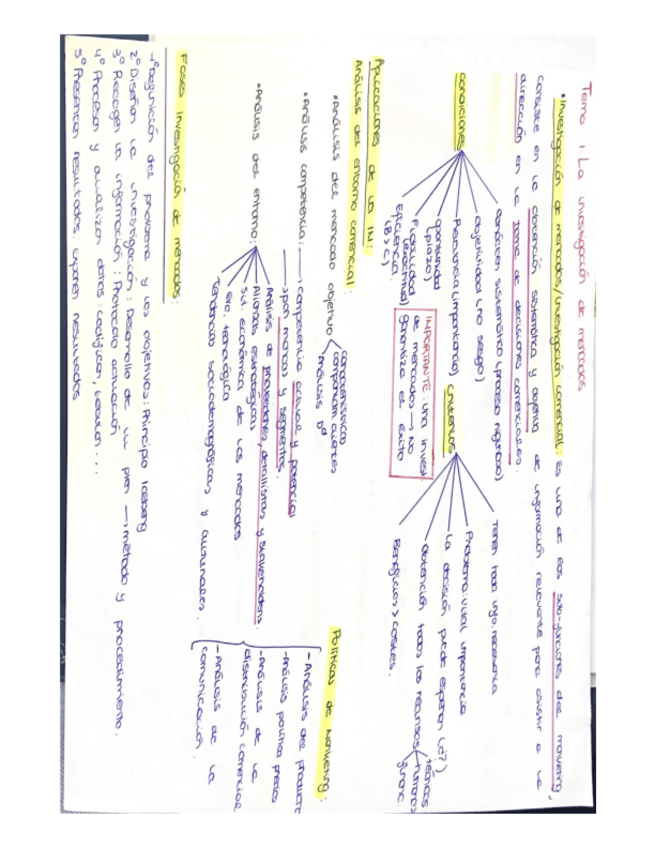 Tema 1 La investigación de mercados
• Investigación de mercados/investigación comercial: Es una de las sub-funciones del marketing,
consiste en la obtención sistemática y objetiva de información relevante para asistir a la
dirección en la toma de decisiones comerciales.
condiciones
Carácter sistemático (proceso riguroso)
objetividad (no sesgo)
Relevancia (importancia)
oportunidad
(plazo)
Fiabilidad
Eficiencia
(B > C)
IMPORTANTE: una invest
de mercados → NO
garantiza el éxito
Criterios
Tener toda info. necesaria
Problema vital importancia
La decisión puede esperar (¿?)
obtención todos los recursos
técnicos
humanos
financ.
Beneficios > costes.
Aplicaciones de la IM:
Análisis del entorno comercial:
• Análisis del mercado objetivo
características
comportam. clientes
Análisis Dª
• Análisis competencia: → competencia actual y potencial
→ por marcas y segmentos.
• Análisis del entorno:
Análisis de proveedores, detallistas y stakeholders.
Alianzas estratégicas
Sit. económica de los mercados
Evo. tecnológica
Tendencia sociodemográficas y culturales.
Políticas de Marketing:
- Análisis del producto
- Análisis política precios
- Análisis de la
distribución comercial
- Análisis de la
comunicación.
Fases Investigación de mercados:
1º Definición del problema y los objetivos: Principio Iceberg
2º Diseñar la investigación: Desarrollo de un plan → método y procedimiento.
3º Recoger la información: Protocolo actuación
4º Procesar y analizar datos: codificar, tabular...
5º Presentar resultados: exponer resultados